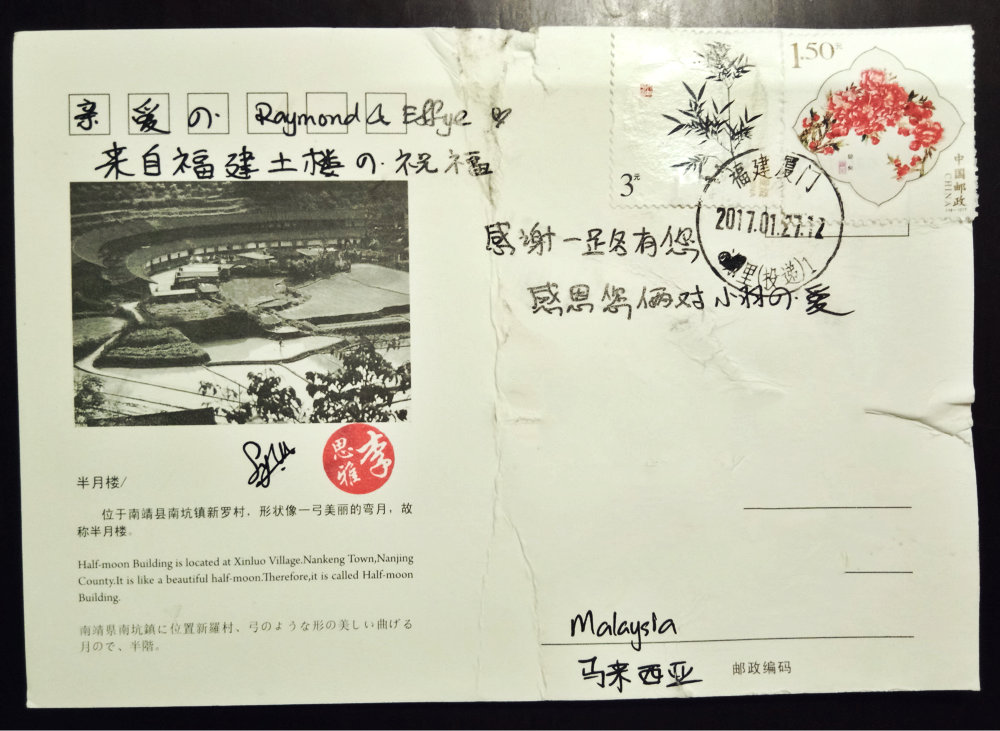 亲爱の Raymond & Effye
来自福建土楼の祝福
感谢一足各有您
感恩您俩对小羽の爱
3元
1.50元
中国邮政
CHINA
福建厦门
2017.01.27.12
里(投递)1
李思雅
半月楼/
位于南靖县南坑镇新罗村，形状像一弓美丽的弯月，故
称半月楼。
Half-moon Building is located at Xinluo Village.Nankeng Town,Nanjing
County.It is like a beautiful half-moon.Therefore,it is called Half-moon
Building.
南靖県南坑鎮に位置新羅村、弓のような形の美しい曲げる
月ので、半階。
Malaysia
马来西亚
邮政编码